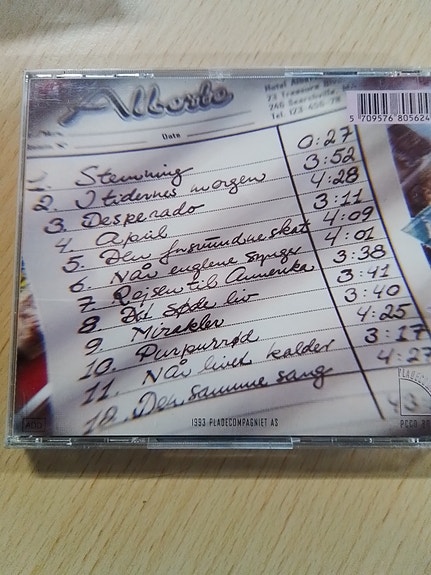 Alberto
Hotel Alberto
73 Treasure
246 Searchville,
Tel. 123-456-78
Date
5 709576 805624
1. Stemning 0:27
2. I tidernes morgen 3:52
3. Desperado 4:28
4. April 3:11
5. Den forsvundne skat 4:09
6. Når englene synger 4:01
7. Rejsen til Amerika 3:38
8. Det søde liv 3:41
9. Mirakler 3:40
10. Purpurrød 4:25
11. Når livet kalder 3:17
12. Den samme sang 4:27
1993 PLADECOMPAGNIET AS